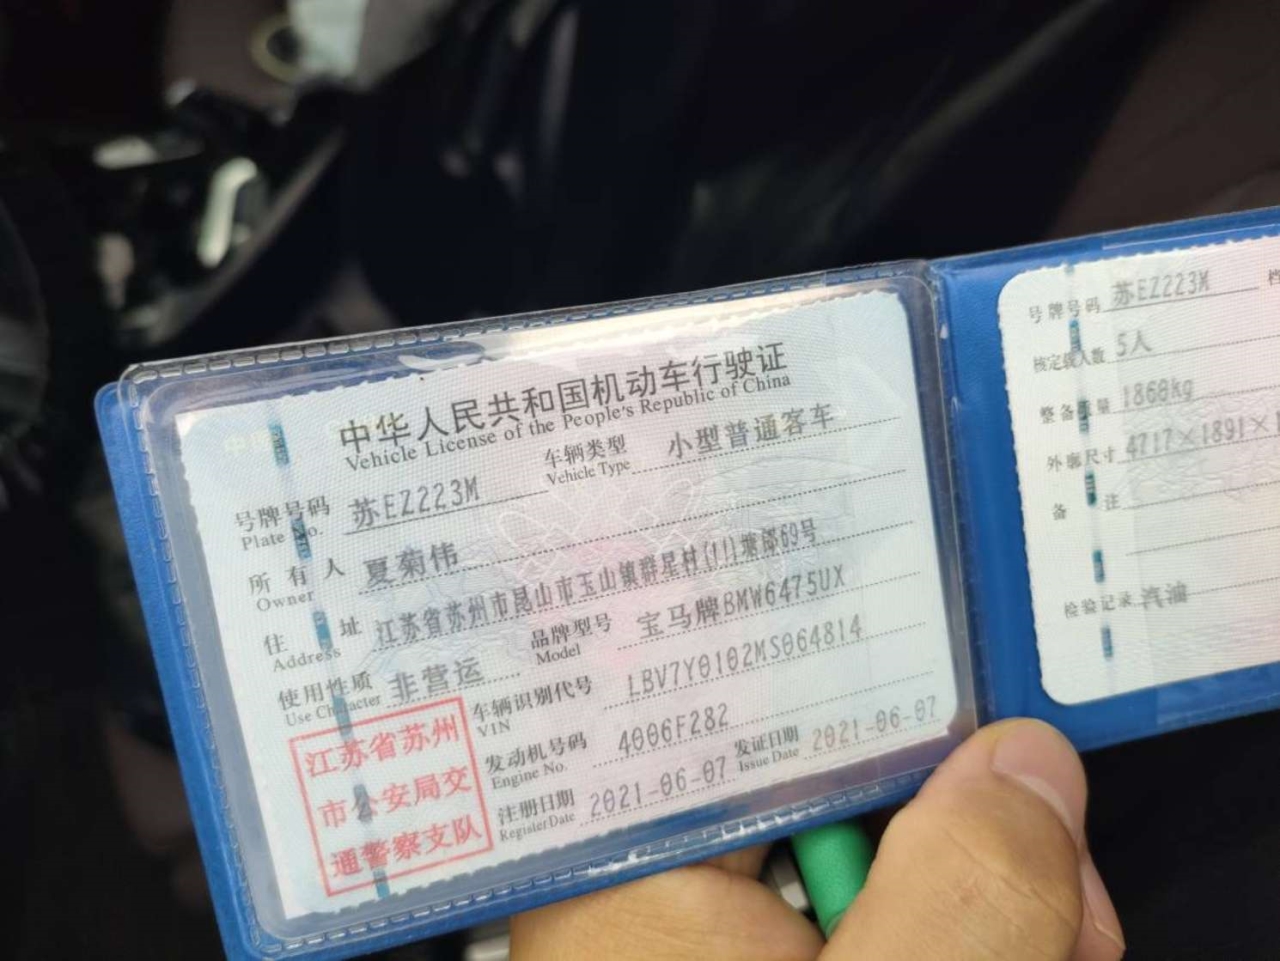 中华人民共和国机动车行驶证
Vehicle License of the People's Republic of China
号牌号码 苏EZ223M 车辆类型 小型普通客车
Plate No. Vehicle Type
所有人 夏菊伟
Owner
住址 江苏省苏州市昆山市玉山镇群星村(11)塘郎69号
Address
使用性质 非营运 品牌型号 宝马牌BMW6475UX
Use Character Model
车辆识别代号 LBV7Y0102MS064814
VIN
发动机号码 4006F282
Engine No.
注册日期 2021-06-07 发证日期 2021-06-07
Register Date Issue Date
江苏省苏州
市公安局交
通警察支队
号牌号码 苏EZ223M
核定载人数 5人
整备质量 1860kg
外廓尺寸 4717×1891×1
备注
检验记录 汽油